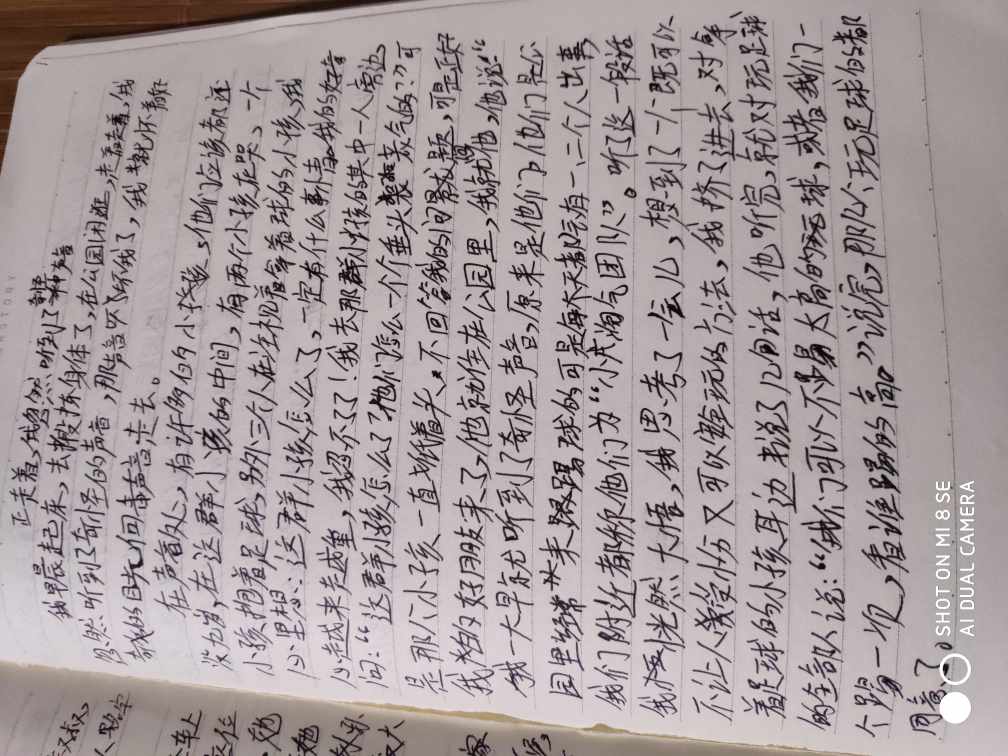 正走着,我忽然听到了
我早晨起来,去锻炼身体了,在公园闲逛,走着走着,我
忽然听到了奇怪的声音,那声音吓坏我了,我就怀着好
我的目光向着声音走去。
在声音处,有许多的小孩,他们应该都还
没九岁,在这群小孩的中间,有两个小孩在哭,一个
小孩抱着足球,另外三个人在生机着拿着球的小孩,我
心里想:这群小孩怎么了,一定有什么事情,我的好奇
心越来越望,我忍不了!我去那群小孩的其中一人旁边
问:“这群小孩怎么了他们怎么一个个垂头丧气的?”可
是那个小孩一直低着头,不回答我的问题,可是正好
我的好朋友来了,他就住在公园里,我就问他,他说:“
我一大早就听到了奇怪声音,原来是他们,他们是公
园里经常来踢球的可是每天都会有一、二个人出事
我们附近都称他们为“小淘气团队”。听了这一段话
我恍然大悟,我思考了一会儿,想到了一个既可以
不让人受伤又可以继玩的方法,我挤了进去,对拿
着足球的小孩耳边说了几句话,他听完,就对玩足球
的全部人说:“我们可以不易太高的球,或者我们一
个踢一次,看谁踢的高。”说完,那么个玩足球的都
同意了。
SHOT ON MI 8 SE
AI DUAL CAMERA